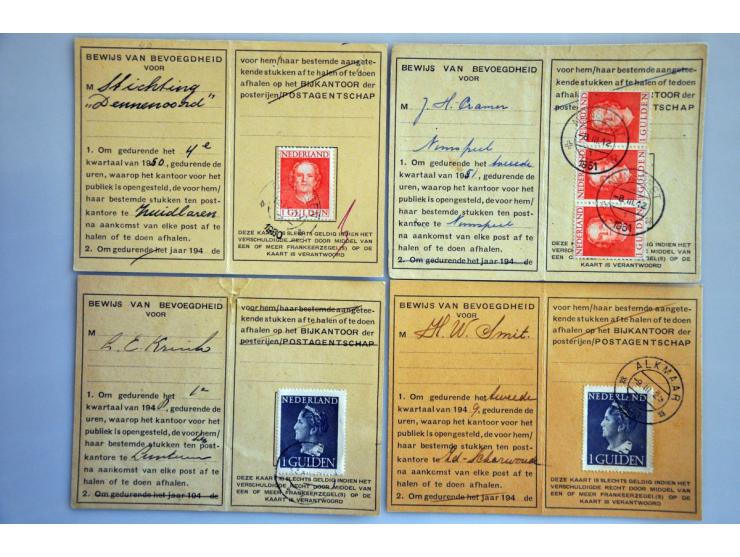 BEWIJS VAN BEVOEGDHEID
VOOR
M Stichting
"Dennenoord"
1. Om gedurende het 4e
kwartaal van 1950, gedurende de
uren, waarop het kantoor voor het
publiek is opengesteld, de voor hem/
haar bestemde stukken ten post-
kantore te Zuidlaren
na aankomst van elke post af te
halen of te doen afhalen.
2. Om gedurende het jaar 194 de
voor hem/haar bestemde aangete-
kende stukken af te halen of te doen
afhalen op het BIJKANTOOR der
posterijen/POSTAGENTSCHAP
NEDERLAND
1 GULDEN
1950
DEZE KAART IS SLECHTS GELDIG INDIEN HET
VERSCHULDIGDE RECHT DOOR MIDDEL VAN
EEN OF MEER FRANKEERZEGEL(S) OP DE
KAART IS VERANTWOORD
BEWIJS VAN BEVOEGDHEID
VOOR
M J. H. Cramer
Nunspeet
1. Om gedurende het tweede
kwartaal van 1951, gedurende de
uren, waarop het kantoor voor het
publiek is opengesteld, de voor hem/
haar bestemde stukken ten post-
kantore te Nunspeet
na aankomst van elke post af te
halen of te doen afhalen.
2. Om gedurende het jaar 194 de
voor hem/haar bestemde aangete-
kende stukken af te halen of te doen
afhalen op het BIJKANTOOR der
posterijen/POSTAGENTSCHAP
NEDERLAND
1 GULDEN
1951
1951
DEZE KAART IS SLECHTS GELDIG INDIEN HET
VERSCHULDIGDE RECHT DOOR MIDDEL VAN
EEN OF MEER FRANKEERZEGEL(S) OP DE
KAART IS VERANTWOORD
BEWIJS VAN BEVOEGDHEID
VOOR
M
1. Om gedurende het 1e
kwartaal van 194 , gedurende de
uren, waarop het kantoor voor het
publiek is opengesteld, de voor hem/
haar bestemde stukken ten post-
kantore te
na aankomst van elke post af te
halen of te doen afhalen.
2. Om gedurende het jaar 194 de
voor hem/haar bestemde aangete-
kende stukken af te halen of te doen
afhalen op het BIJKANTOOR der
posterijen/POSTAGENTSCHAP
NEDERLAND
1 GULDEN
DEZE KAART IS SLECHTS GELDIG INDIEN HET
VERSCHULDIGDE RECHT DOOR MIDDEL VAN
EEN OF MEER FRANKEERZEGEL(S) OP DE
KAART IS VERANTWOORD
BEWIJS VAN BEVOEGDHEID
VOOR
M H. W. Smit.
1. Om gedurende het tweede
kwartaal van 1949, gedurende de
uren, waarop het kantoor voor het
publiek is opengesteld, de voor hem/
haar bestemde stukken ten post-
kantore te Zd-Scharwoude
na aankomst van elke post af te
halen of te doen afhalen.
2. Om gedurende het jaar 194 de
voor hem/haar bestemde aangete-
kende stukken af te halen of te doen
afhalen op het BIJKANTOOR der
posterijen/POSTAGENTSCHAP
ALKMAAR
NEDERLAND
1 GULDEN
DEZE KAART IS SLECHTS GELDIG INDIEN HET
VERSCHULDIGDE RECHT DOOR MIDDEL VAN
EEN OF MEER FRANKEERZEGEL(S) OP DE
KAART IS VERANTWOORD